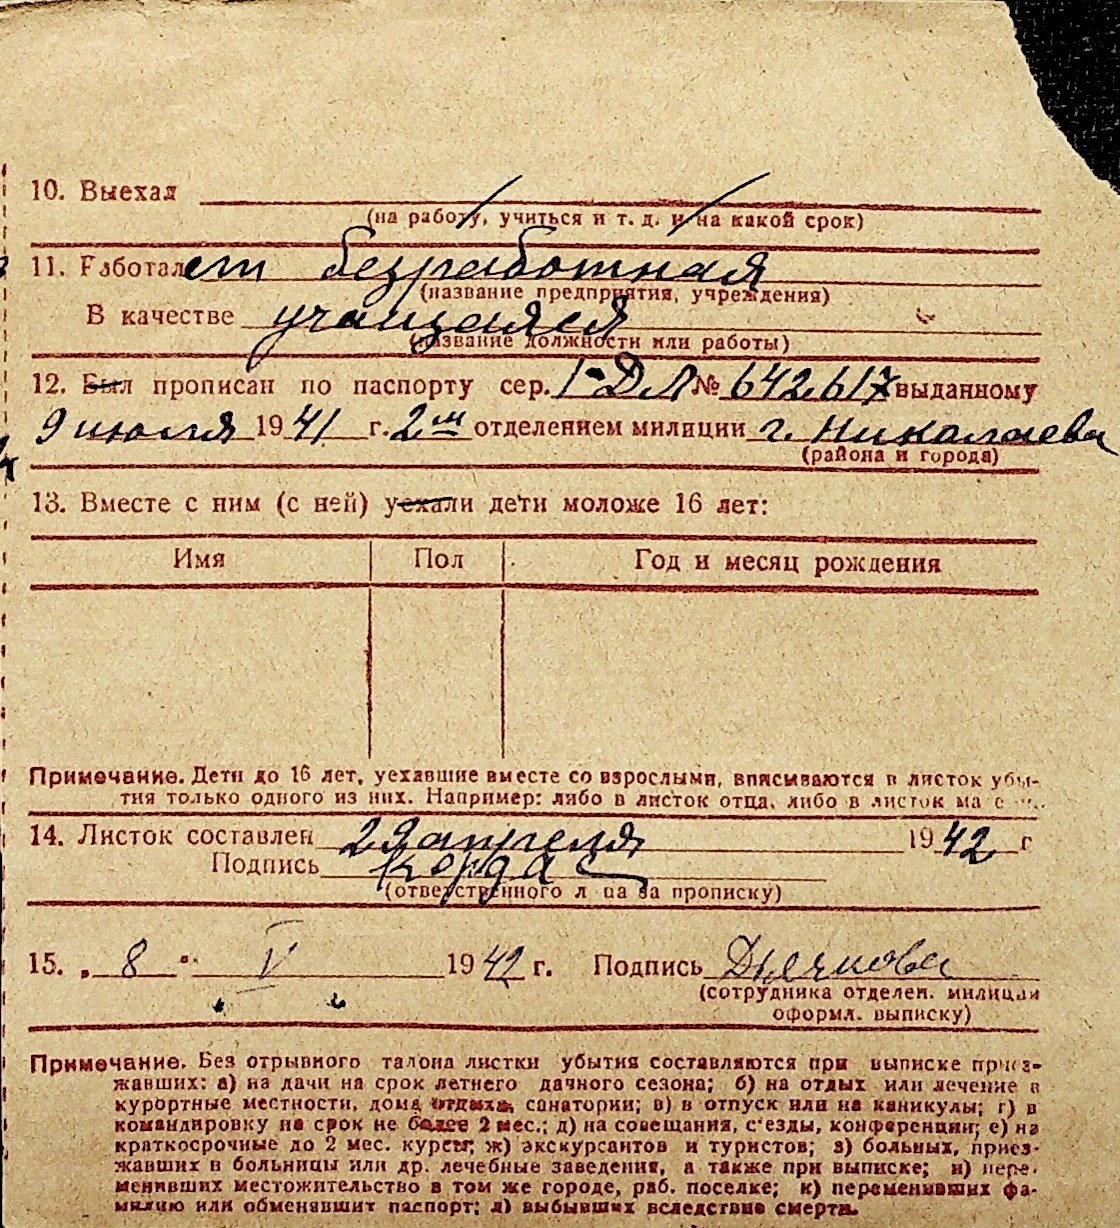 10. Выехал
(на работу, учиться и т. д. и на какой срок)
11. Работал безработная
(название предприятия, учреждения)
В качестве учащаяся
(название должности или работы)
12. Был прописан по паспорту сер. I-ДЛ № 642617 выданному
9 июля 1941 г. 2ым отделением милиции г. Николаева
(района и города)
13. Вместе с ним (с ней) уехали дети моложе 16 лет:
Имя Пол Год и месяц рождения
Примечание. Дети до 16 лет, уехавшие вместе со взрослыми, вписываются в листок убы-
тия только одного из них. Например: либо в листок отца, либо в листок
14. Листок составлен 29 апреля 1942 г
Подпись Кордас
(ответственного лица за прописку)
15. „ 8 " V 1942 г. Подпись Дьячкова
(сотрудника отделен. милиции
оформл. выписку)
Примечание. Без отрывного талона листки убытия составляются при выписке приез-
жавших: а) на дачи на срок летнего дачного сезона; б) на отдых или лечение в
курортные местности, дома отдыха, санатории; в) в отпуск или на каникулы; г) в
командировку на срок не более 2 мес.; д) на совещания, с'езды, конференции; е) на
краткосрочные до 2 мес. курсы; ж) экскурсантов и туристов; з) больных, приез-
жавших в больницы или др. лечебные заведения, а также при выписке; и) пере-
менивших местожительство в том же городе, раб. поселке; к) переменивших фа-
милию или обменявших паспорт; л) выбывших вследствие смерти.